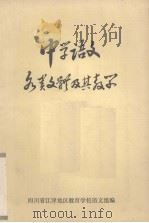 中学语文
各类文体及其教学
四川省江津地区教育学院语文组编